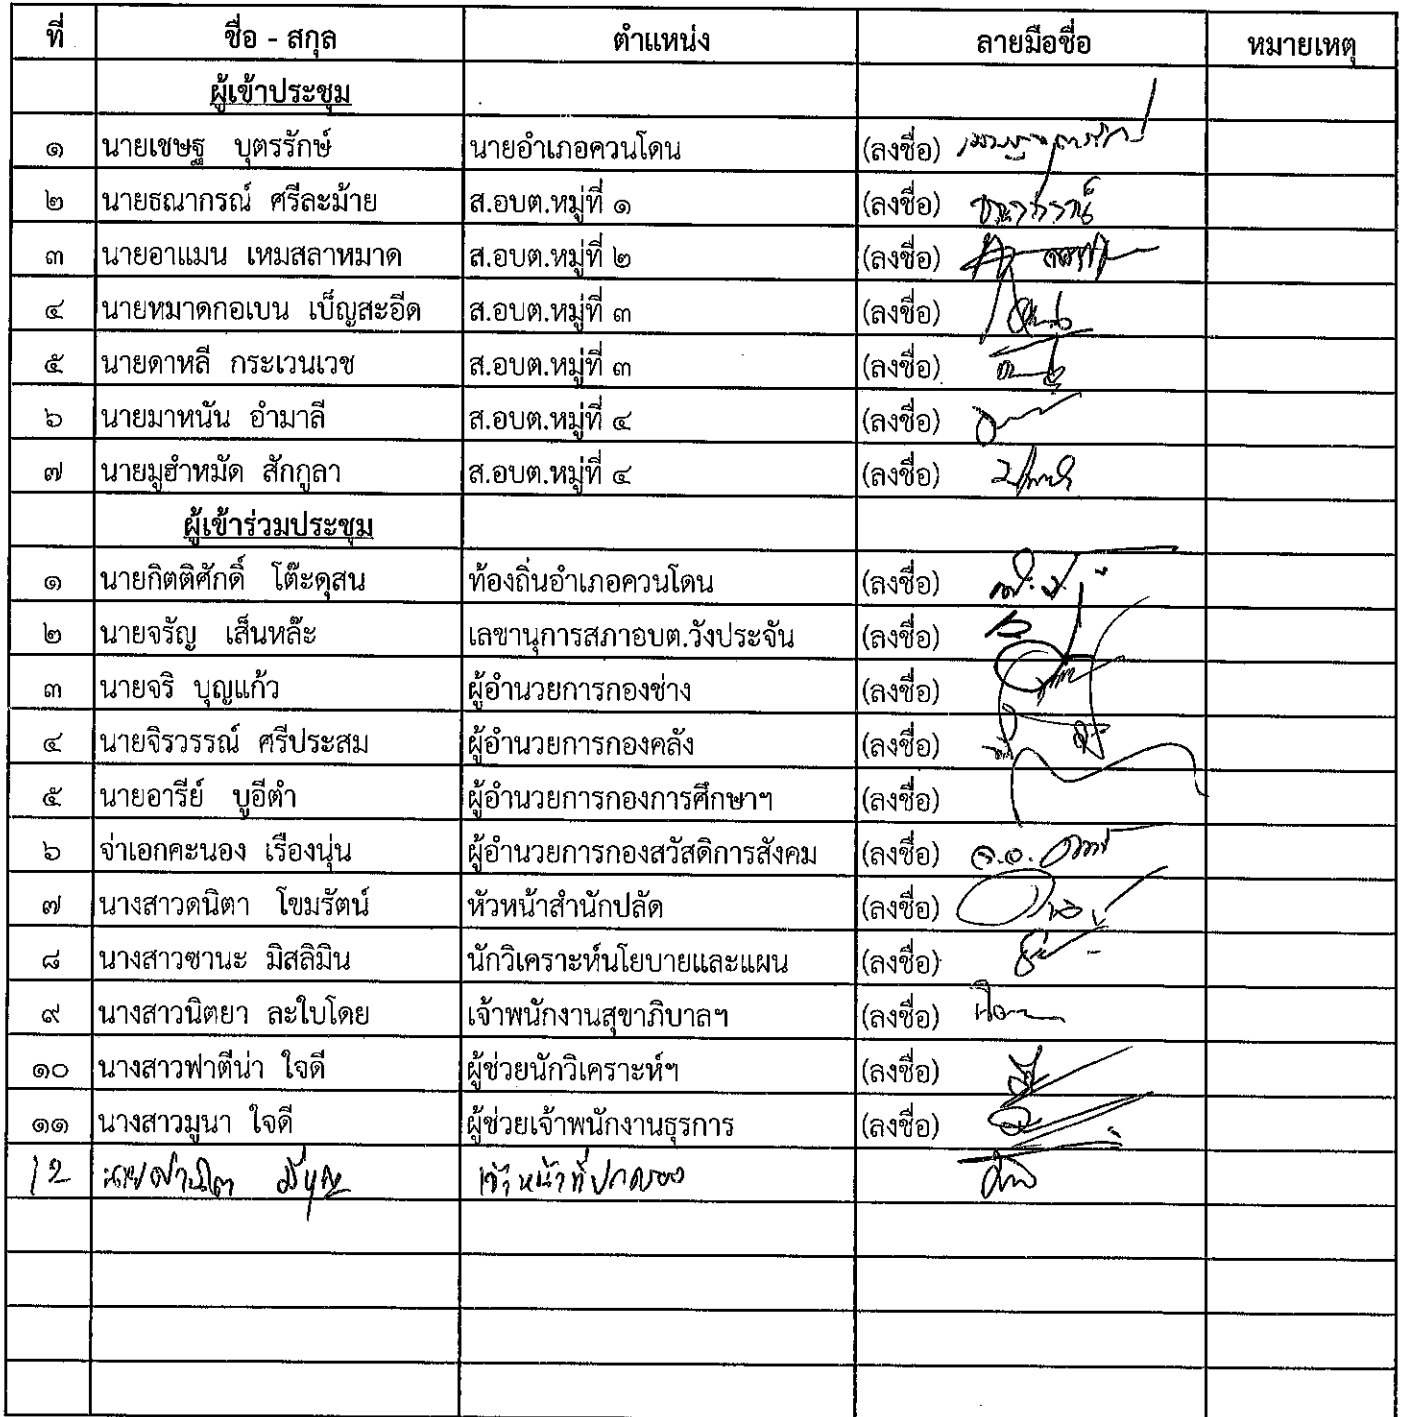 ที่ ชื่อ - สกุล ตำแหน่ง ลายมือชื่อ หมายเหตุ
ผู้เข้าประชุม
๑ นายเชษฐ บุตรรักษ์ นายอำเภอควนโดน (ลงชื่อ)
๒ นายธณากรณ์ ศรีละม้าย ส.อบต.หมู่ที่ ๑ (ลงชื่อ)
๓ นายอาแมน เหมสลาหมาด ส.อบต.หมู่ที่ ๒ (ลงชื่อ)
๔ นายหมาดกอเบน เบ็ญสะอีด ส.อบต.หมู่ที่ ๓ (ลงชื่อ)
๕ นายดาหลี กระเวนเวช ส.อบต.หมู่ที่ ๓ (ลงชื่อ)
๖ นายมาหนัน อำมาลี ส.อบต.หมู่ที่ ๔ (ลงชื่อ)
๗ นายมูฮำหมัด สักกูลา ส.อบต.หมู่ที่ ๔ (ลงชื่อ)
ผู้เข้าร่วมประชุม
๑ นายกิตติศักดิ์ โต๊ะดุสน ท้องถิ่นอำเภอควนโดน (ลงชื่อ)
๒ นายจรัญ เส็นหล๊ะ เลขานุการสภาอบต.วังประจัน (ลงชื่อ)
๓ นายจริ บุญแก้ว ผู้อำนวยการกองช่าง (ลงชื่อ)
๔ นายจิรวรรณ์ ศรีประสม ผู้อำนวยการกองคลัง (ลงชื่อ)
๕ นายอารีย์ บูอีตำ ผู้อำนวยการกองการศึกษาฯ (ลงชื่อ)
๖ จ่าเอกคะนอง เรืองนุ่น ผู้อำนวยการกองสวัสดิการสังคม (ลงชื่อ)
๗ นางสาวดนิตา โขมรัตน์ หัวหน้าสำนักปลัด (ลงชื่อ)
๘ นางสาวซานะ มิสลิมิน นักวิเคราะห์นโยบายและแผน (ลงชื่อ)
๙ นางสาวนิตยา ละใบโดย เจ้าพนักงานสุขาภิบาลฯ (ลงชื่อ)
๑๐ นางสาวฟาตีน่า ใจดี ผู้ช่วยนักวิเคราะห์ฯ (ลงชื่อ)
๑๑ นางสาวมูนา ใจดี ผู้ช่วยเจ้าพนักงานธุรการ (ลงชื่อ)
12 เจ้าหน้าที่ปกครอง